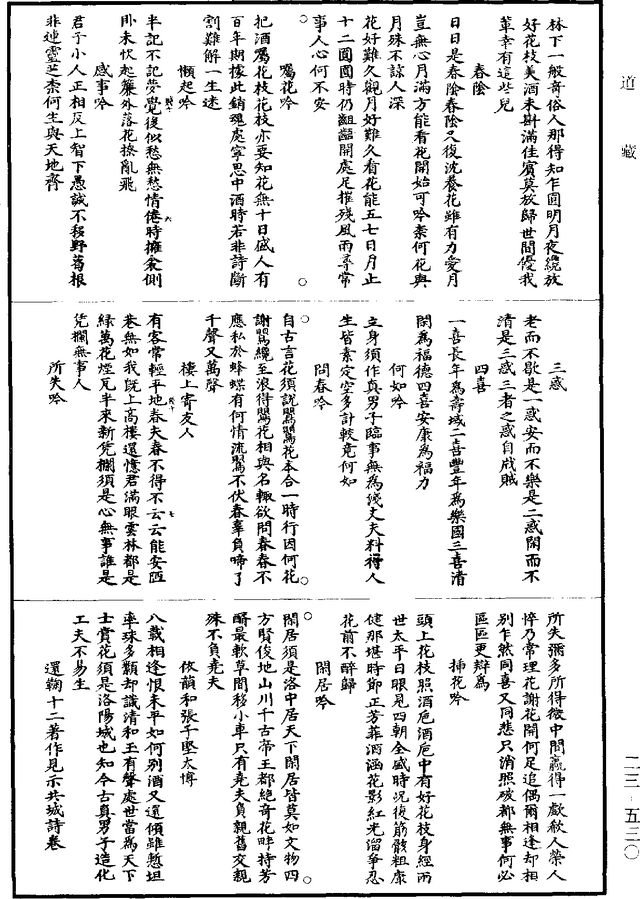 道藏
林下一般奇俗人那得知乍圓明月夜纔放
好花枝美酒未斟滿佳賓莫放歸世間優我
輩幸有這些兒
春陰
日日是春陰春陰又復沈養花雖有力愛月
豈無心月滿方能看花開始可吟柰何花與
月殊不諒人深
花好難久觀月好難久看花能五七日月止
十二圓圓時仍齟齬開處足摧殘風雨尋常
事人心何不安
囑花吟
把酒囑花枝花枝亦要知花無十日盛人有
百年期據此銷魂處寧思中酒時若非詩斷
割難解一生迷
懶起吟
半記不記夢覺後似愁無愁情倦時擁衾側
臥未忺起簾外落花撩亂飛
感事吟
君子小人正相反上智下愚誠不移野葛根
非連靈芝柰何生與天地齊
三惑
老而不歇是一惑安而不樂是二惑閑而不
清是三惑三者之惑自戕賊
四喜
一喜長年爲壽域二喜豐年爲樂國三喜清
閑爲福德四喜安康爲福力
何如吟
立身須作真男子臨事無爲淺丈夫料得人
生皆素定空多計較竟何如
問春吟
自古言花須說鸎鸎花本合一時行因何花
謝鸎纔至浪得鸎花相與名輙欲問春春不
應私於蜂蝶有何情流鸎不伏春辜負啼了
千聲又萬聲
樓上寄友人
有客常輕平地春夫春不得不云云能安陋
巷無如我旣上高樓還憶君滿眼雲林都是
綠萬花煙瓦半來新凭欄須是心無事誰是
凭欄無事人
所失吟
所失彌多所得微中間贏得一歔欷人榮人
悴乃常理花謝花開何足追偶爾相逢却相
別乍然同喜又同悲只消照破都無事何必
區區更辯爲
插花吟
頭上花枝照酒巵酒巵中有好花枝身經兩
世太平日眼見四朝全盛時况復筋骸粗康
健那堪時節正芳菲酒涵花影紅光溜爭忍
花前不醉歸
閑居吟
閑居須是洛中居天下閑居皆莫如文物四
方賢俊地山川千古帝王都絕奇花畔持芳
醑最軟草間移小車只有堯夫負親舊交親
殊不負堯夫
依韻和張子堅太博
八載相逢恨未平如何別酒又還傾雖慙坦
率珠多纇却識清和玉有聲處世當爲天下
士賞花須是洛陽城也知今古真男子造化
工夫不易生
還鞠十二著作見示共城詩卷
二三·五三〇